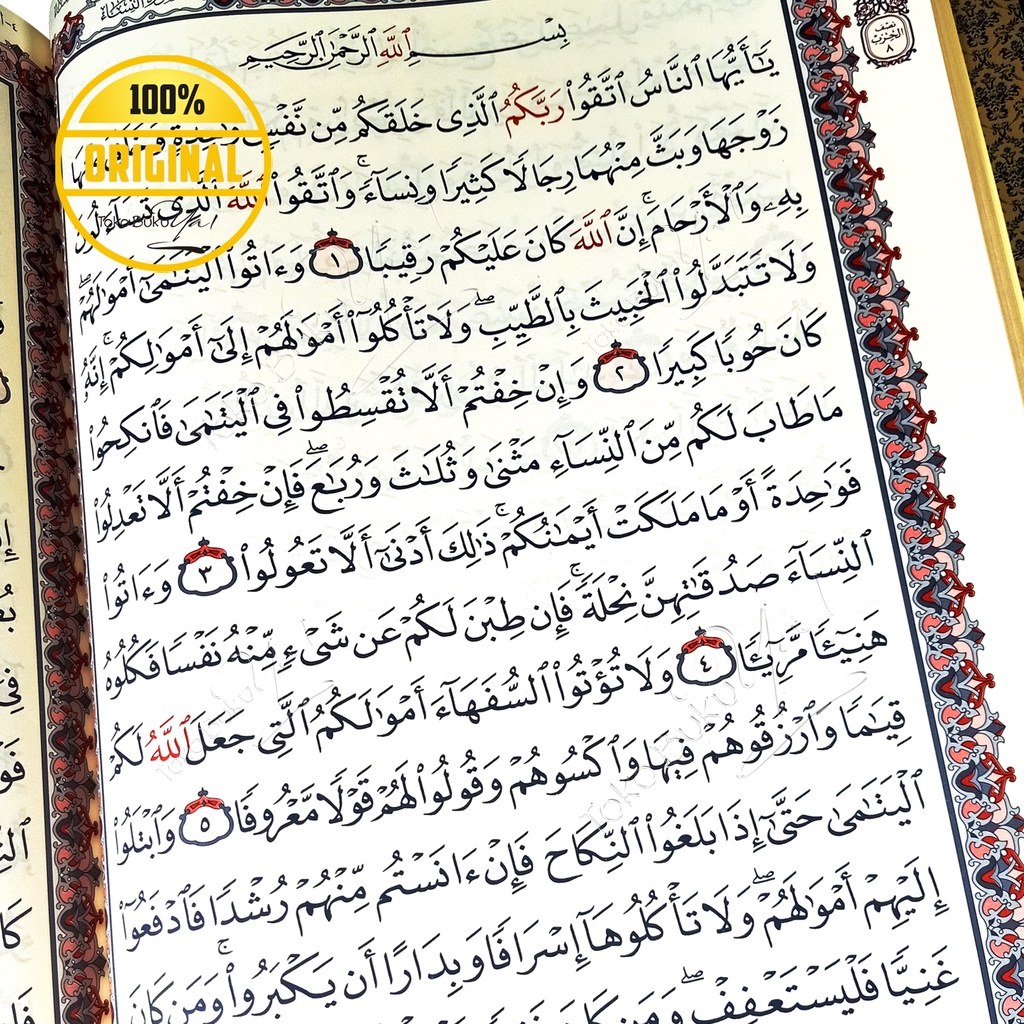 سورة النساء
نصف
الحزب
٨
بِسْمِ ٱللَّهِ ٱلرَّحْمَٰنِ ٱلرَّحِيمِ
يَٰٓأَيُّهَا ٱلنَّاسُ ٱتَّقُوا۟ رَبَّكُمُ ٱلَّذِى خَلَقَكُم مِّن نَّفْسٍ وَٰحِدَةٍ وَخَلَقَ مِنْهَا
زَوْجَهَا وَبَثَّ مِنْهُمَا رِجَالًا كَثِيرًا وَنِسَآءً ۚ وَٱتَّقُوا۟ ٱللَّهَ ٱلَّذِى تَسَآءَلُونَ
بِهِۦ وَٱلْأَرْحَامَ ۚ إِنَّ ٱللَّهَ كَانَ عَلَيْكُمْ رَقِيبًا ١ وَءَاتُوا۟ ٱلْيَتَٰمَىٰٓ أَمْوَٰلَهُمْ ۖ
وَلَا تَتَبَدَّلُوا۟ ٱلْخَبِيثَ بِٱلطَّيِّبِ ۖ وَلَا تَأْكُلُوٓا۟ أَمْوَٰلَهُمْ إِلَىٰٓ أَمْوَٰلِكُمْ ۚ إِنَّهُۥ
كَانَ حُوبًا كَبِيرًا ٢ وَإِنْ خِفْتُمْ أَلَّا تُقْسِطُوا۟ فِى ٱلْيَتَٰمَىٰ فَٱنكِحُوا۟
مَا طَابَ لَكُم مِّنَ ٱلنِّسَآءِ مَثْنَىٰ وَثُلَٰثَ وَرُبَٰعَ ۖ فَإِنْ خِفْتُمْ أَلَّا تَعْدِلُوا۟
فَوَٰحِدَةً أَوْ مَا مَلَكَتْ أَيْمَٰنُكُمْ ۚ ذَٰلِكَ أَدْنَىٰٓ أَلَّا تَعُولُوا۟ ٣ وَءَاتُوا۟
ٱلنِّسَآءَ صَدُقَٰتِهِنَّ نِحْلَةً ۚ فَإِن طِبْنَ لَكُمْ عَن شَىْءٍ مِّنْهُ نَفْسًا فَكُلُوهُ
هَنِيٓـًٔا مَّرِيٓـًٔا ٤ وَلَا تُؤْتُوا۟ ٱلسُّفَهَآءَ أَمْوَٰلَكُمُ ٱلَّتِى جَعَلَ ٱللَّهُ لَكُمْ
قِيَٰمًا وَٱرْزُقُوهُمْ فِيهَا وَٱكْسُوهُمْ وَقُولُوا۟ لَهُمْ قَوْلًا مَّعْرُوفًا ٥ وَٱبْتَلُوا۟
ٱلْيَتَٰمَىٰ حَتَّىٰٓ إِذَا بَلَغُوا۟ ٱلنِّكَاحَ فَإِنْ ءَانَسْتُم مِّنْهُمْ رُشْدًا فَٱدْفَعُوٓا۟
إِلَيْهِمْ أَمْوَٰلَهُمْ ۖ وَلَا تَأْكُلُوهَآ إِسْرَافًا وَبِدَارًا أَن يَكْبَرُوا۟ ۚ وَمَن كَانَ
غَنِيًّا فَلْيَسْتَعْفِفْ ۖ وَمَن كَانَ
100%
ORIGINAL
Toko Buku
tokobuku